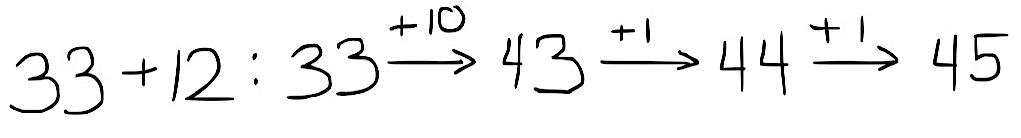 33+12: 33 +10→ 43 +1→ 44 +1→ 45